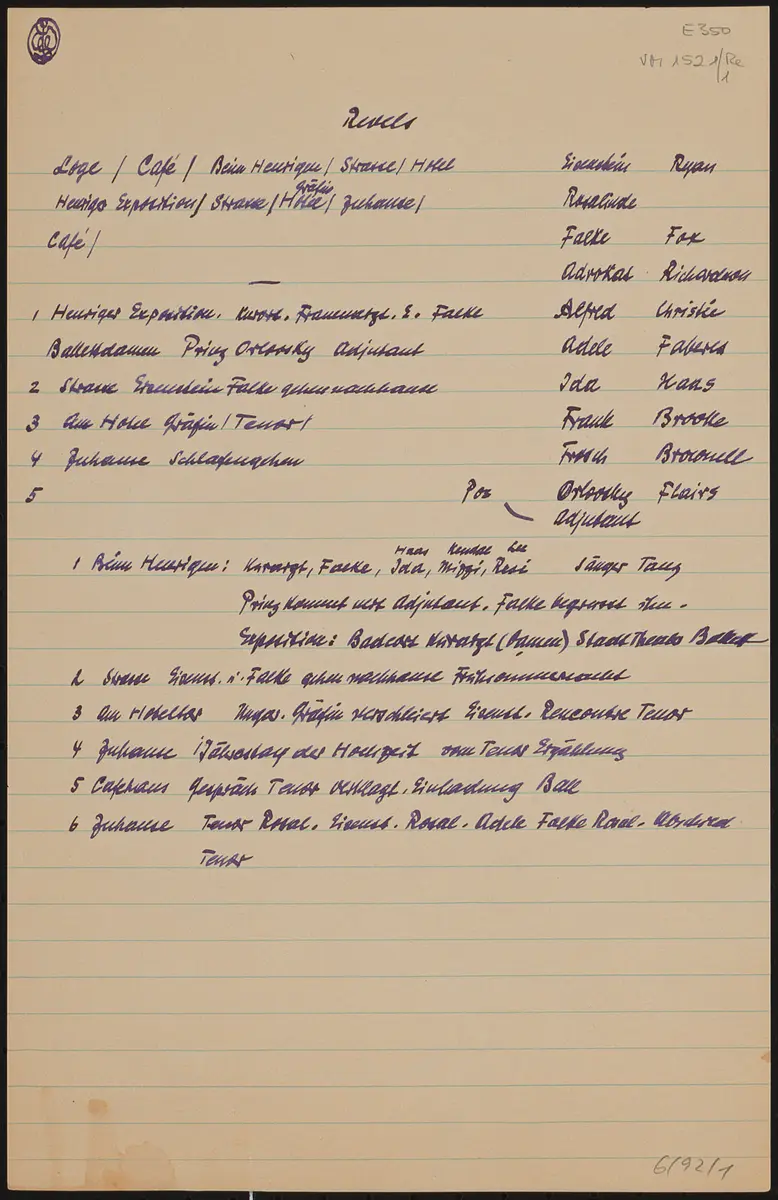 E350
VM 1521/Re
1
Revels
Loge / Café / Beim Heurigen / Strasse / Hotel
Eisenstein Ryan
Heuriger Exposition / Strasse / Hotel / Zuhause /
Gräfin
Rosalinde
Café /
Falke Fox
Advokat Richardson
1 Heuriger Exposition. Kurort. Frauenarzt. E. Falke
Alfred Christie
Balletdamen Prinz Orlovsky Adjutant
Adele Faberes
2 Strasse Eisenstein Falke gehen nachhause
Ida Haas
3 Am Hotel Gräfin / Tenor /
Frank Brooke
4 Zuhause Schlafengehen
Frosch Brownell
5
Pos Orlovsky Flairs
Adjutant
Haas Kendal Lee
1 Beim Heurigen: Kurarzt, Falke, Ida, Mizzi, Resi Sänger Tanz
Prinz kommt mit Adjutant. Falke begrüsst ihn.
Exposition: Badeort Kurarzt (Damen) Stadttheater Ballett
2 Strasse Eisenst. u. Falke gehen nachhause Frühsommernacht
3 Am Hotelbar Ungar. Gräfin verschleiert Eisenst. Rencontre Tenor
4 Zuhause Jahrestag der Hochzeit vom Tenor Erzählung
5 Cafehaus Gespräch Tenor verklagt. Einladung Ball
6 Zuhause Tenor Rosal. Eisenst. Rosal. Adele Falke Rosal. Abschied
Tenor
6/92/1